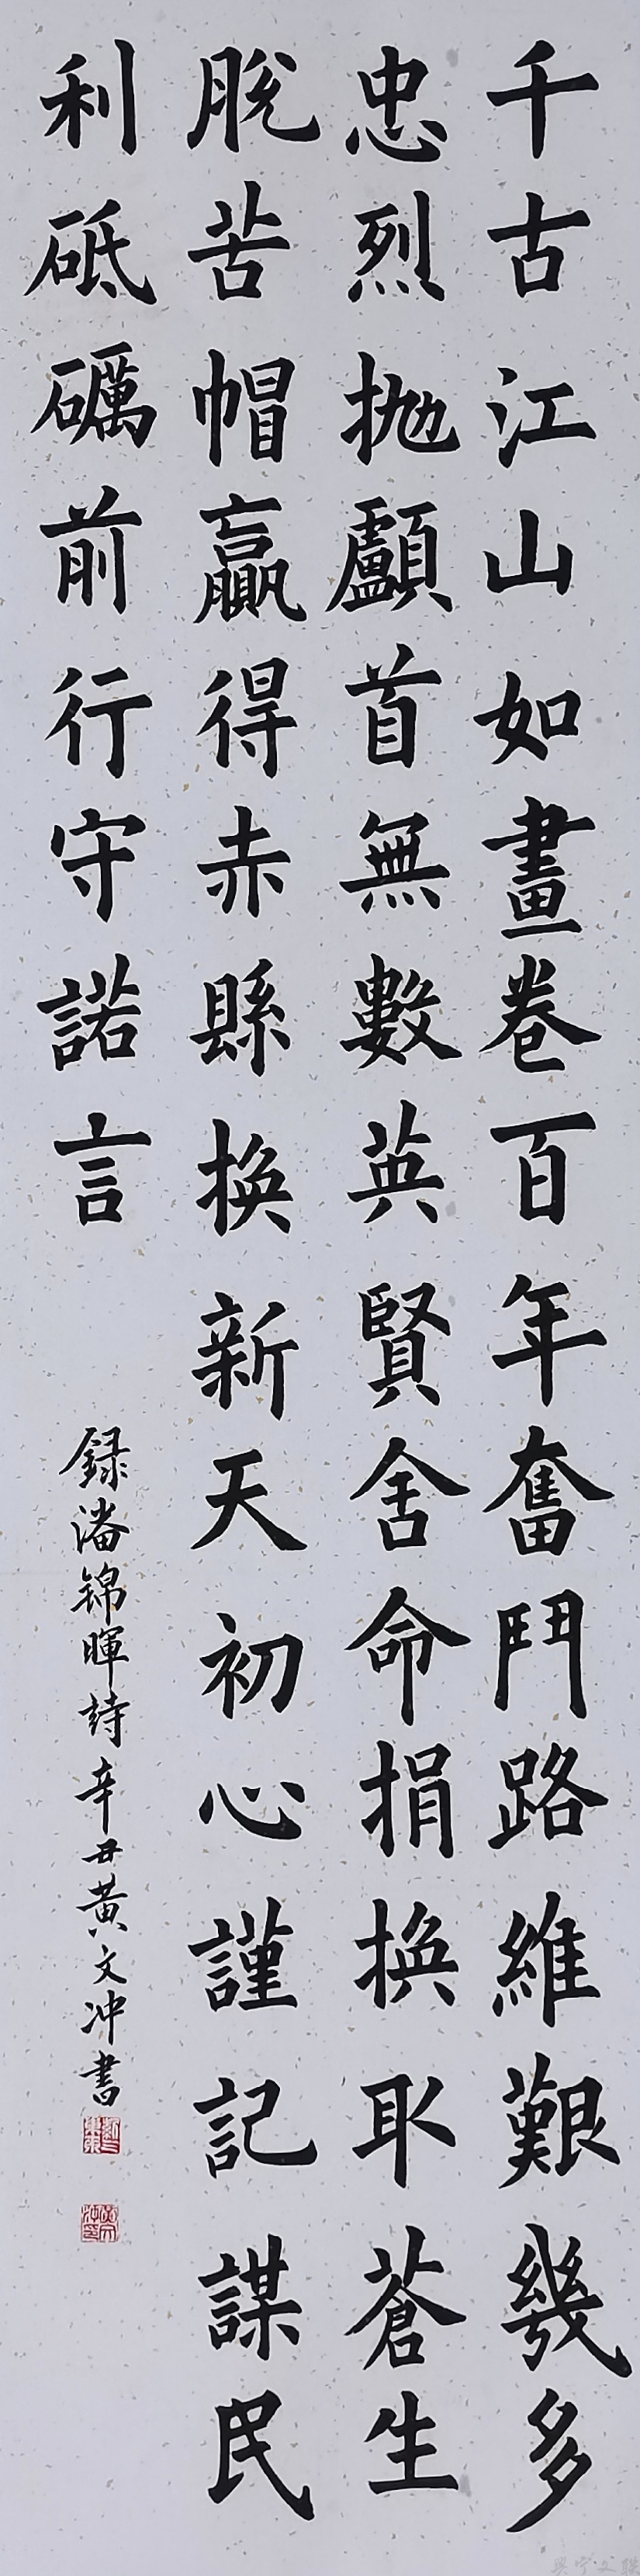 千古江山如畫卷百年奮鬥路維艱幾多
忠烈抛顱首無數英賢舍命捐換取蒼生
脫苦帽贏得赤縣換新天初心謹記謀民
利砥礪前行守諾言
録潘錦暉詩辛丑黃文冲書